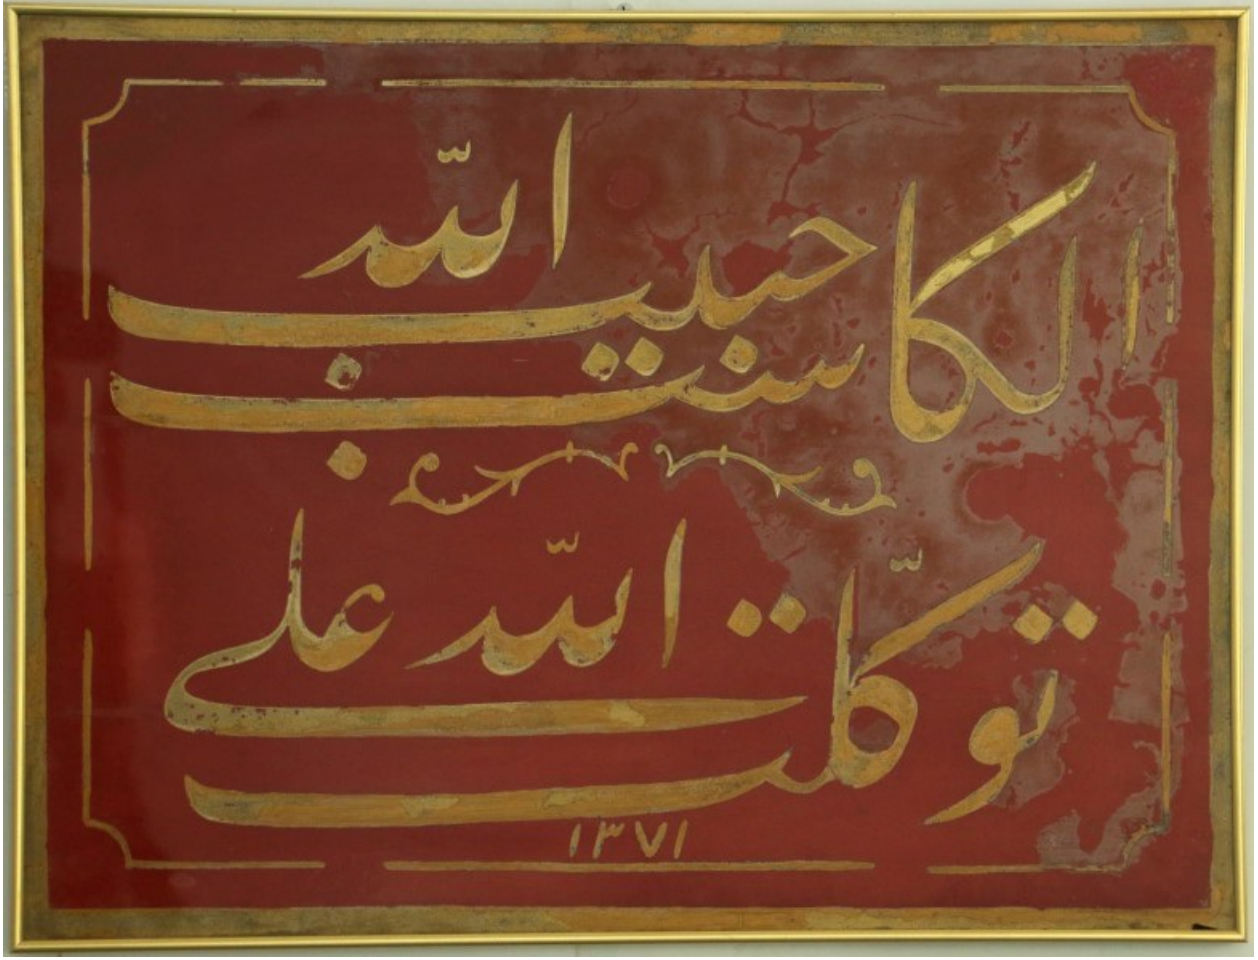 الكاسب حبيب الله
توكلت على الله
١٣٧١